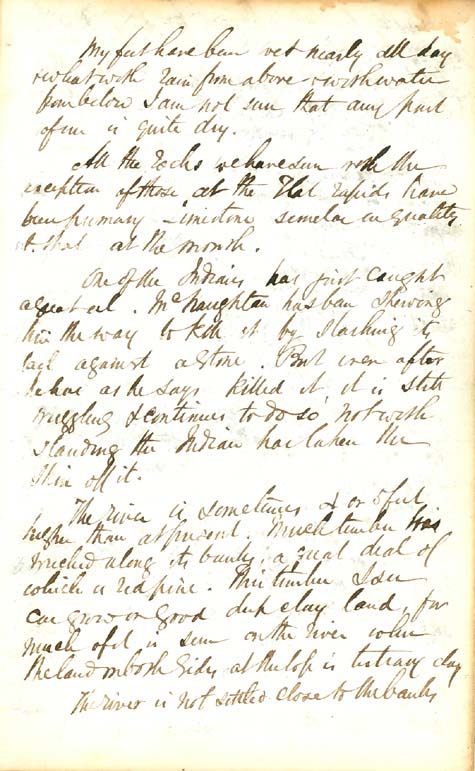 My feet have been wet nearly all day
& what with rain from above & with water
from below I am not sure that any part
of me is quite dry.
All the rocks we have seen with the
exception of those at the Flat rapids have
been primary - limestone similar in quality
to that at the mouth.
One of the Indians has just caught
a great eel. McNaughton has been shewing
him the way to kill it by slashing its
tail against a stone. But even after
he has as he says killed it, it is still
struggling & continues to do so, not with
standing the Indian has taken the
skin off it.
The river is sometimes 4 or 5 feet
higher than at present. Much timber is
along its banks, a great deal of
which is red pine. This timber I see
can grow on good deep clay land, for
much of it is seen on the river when
the land on both sides at the top is tertiary clay
The river is not settled close to the banks